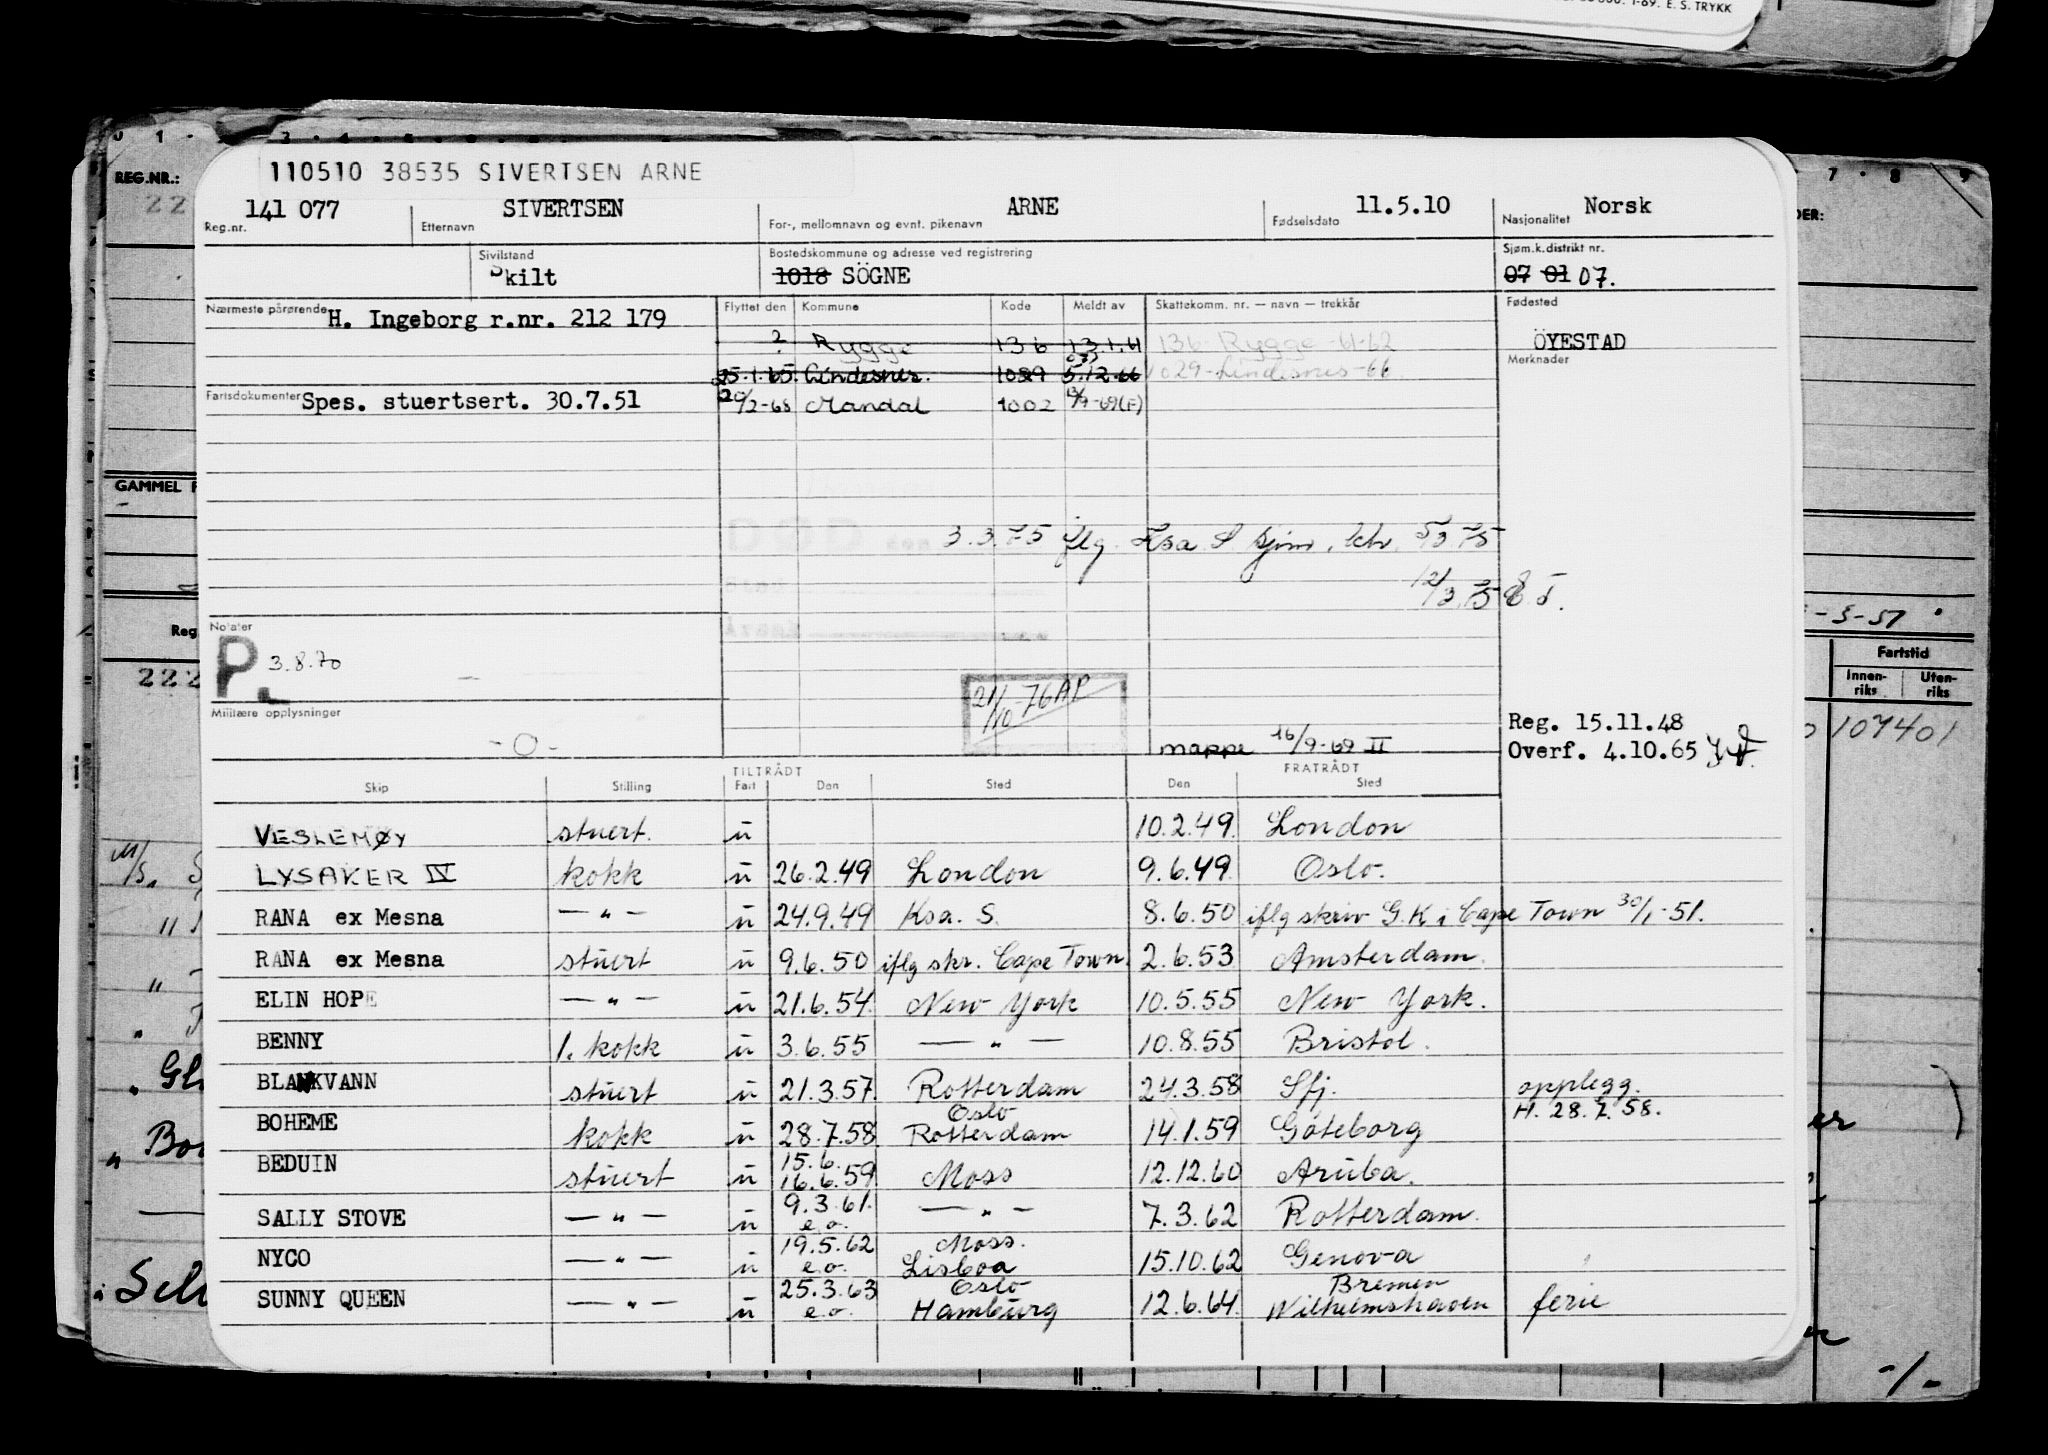 1-69. E. S. TRYKK
REG.NR.:
110510 38535 SIVERTSEN ARNE
141 077 SIVERTSEN ARNE 11.5.10 Norsk
Reg.nr. Etternavn For-, mellomnavn og evnt. pikenavn Fødselsdato Nasjonalitet
Sivilstand Bostedskommune og adresse ved registrering Sjøm.k.distrikt nr.
Skilt 1018 SÖGNE 07 01 07.
Nærmeste pårørende H. Ingeborg r.nr. 212 179 Flyttet den Kommune Kode Meldt av Skattekomm. nr. — navn — trekkår Fødested
? Rygge 136 13.1.61 136 Rygge-61-62 ÖYESTAD
Merknader
25.1.65. Lindesnes. 1029 5.12.66 1029-Lindesnes-66.
Fartsdokumenter Spes. stuertsert. 30.7.51 20/2-68 Mandal 1002 /9-69(F)
GAMMEL
3.3.75 iflg. Ksa S
12/3.75
Notater
P. 3.8.70
-5-51
Fartstid
Innen-riks Uten-riks
222
21/10-76 AP
Militære opplysninger
-0-
mappe 16/9-69 II
Reg. 15.11.48
Overf. 4.10.65
107401
TILTRÅDT FRATRÅDT
Skip Stilling Fart Den Sted Den Sted
VESLEMØY stuert. u 10.2.49. London
LYSAKER IV kokk u 26.2.49 London 9.6.49. Oslo.
RANA ex Mesna — " — u 24.9.49 Ksa. S. 8.6.50 iflg skriv G.K i Cape Town 30/1-51.
RANA ex Mesna stuert u 9.6.50 iflg skr. Cape Town. 2.6.53 Amsterdam.
ELIN HOPE — " — u 21.6.54 New York 10.5.55 New York.
BENNY 1. kokk u 3.6.55 — " — 10.8.55 Bristol.
BLANKVANN stuert u 21.3.57. Rotterdam 24.3.58 Sfj. opplegg.
H. 28.7.58.
BOHEME kokk u 28.7.58 Oslo Rotterdam 14.1.59 Göteborg
BEDUIN stuert u 15.6. 16.6.59 Moss 12.12.60 Aruba.
SALLY STOVE — " — u 9.3.61. e.o. — " — 7.3.62 Rotterdam.
NYCO — " — u 19.5.62 e.o. Moss. Lisboa 15.10.62 Genova
SUNNY QUEEN — " — u 25.3.63 e.o. Oslo Hamburg 12.6.64. Bremen Wilhelmshaven ferie